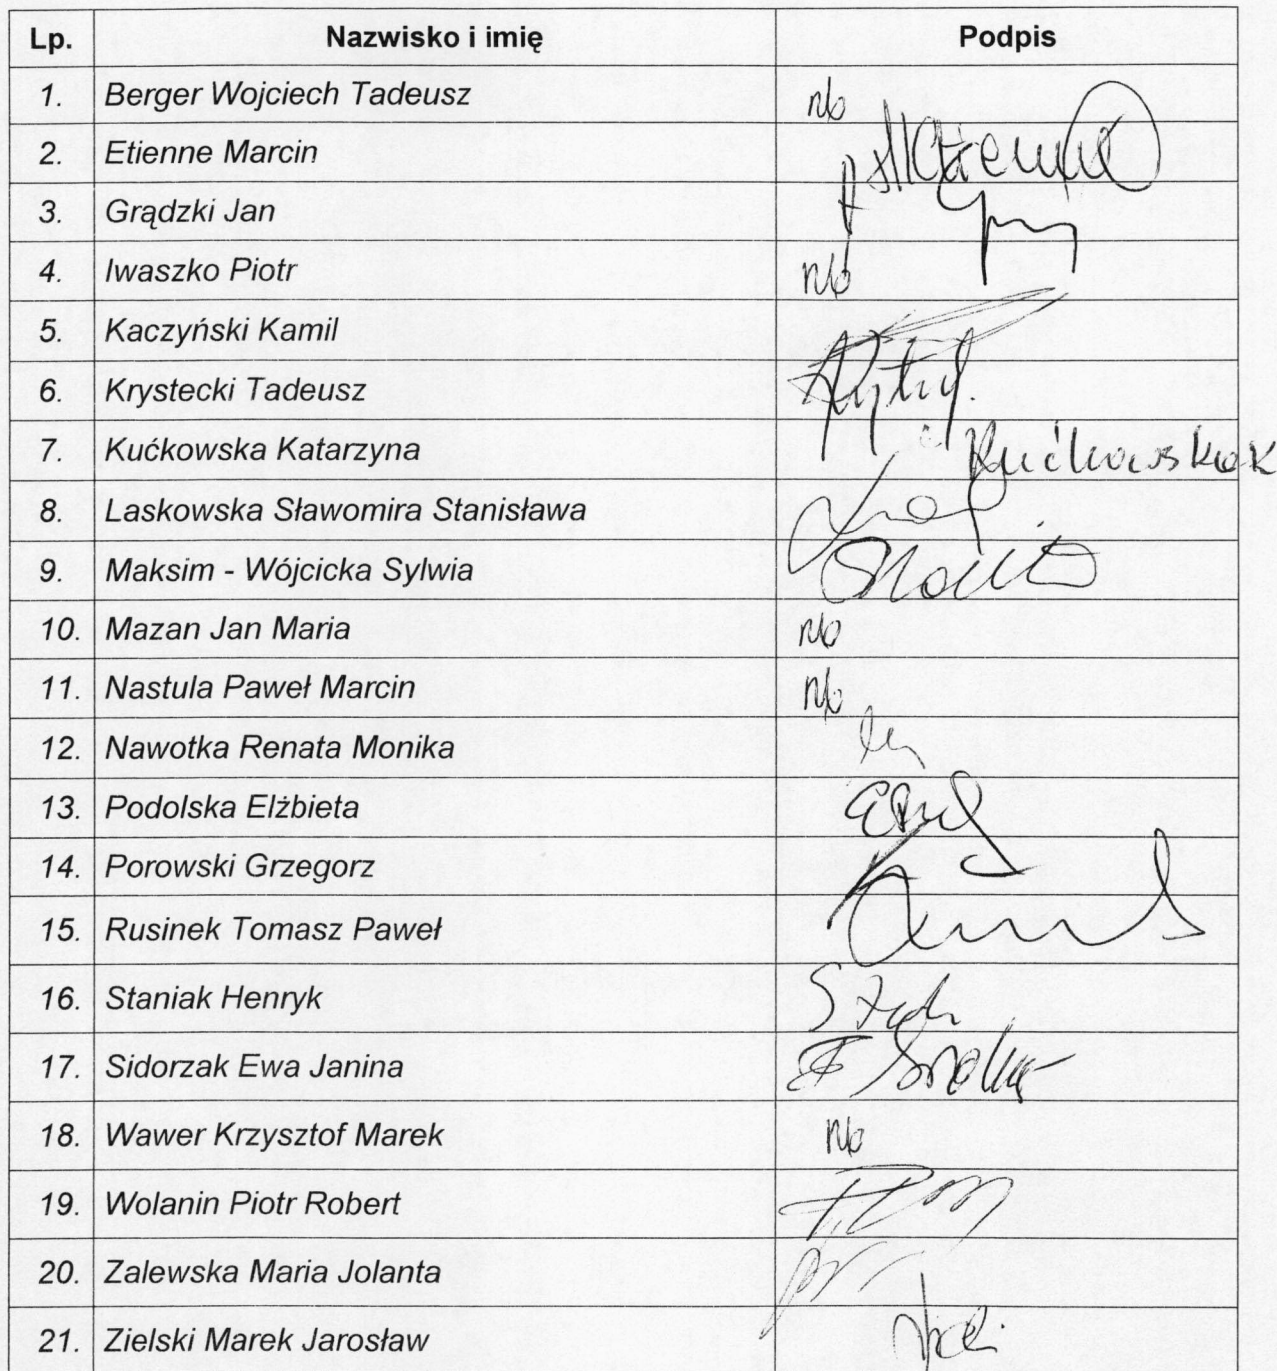 Lp. Nazwisko i imię Podpis
1. Berger Wojciech Tadeusz nb
2. Etienne Marcin
3. Grądzki Jan
4. Iwaszko Piotr nb
5. Kaczyński Kamil
6. Krystecki Tadeusz
7. Kućkowska Katarzyna Kućkowska K
8. Laskowska Sławomira Stanisława
9. Maksim - Wójcicka Sylwia
10. Mazan Jan Maria nb
11. Nastula Paweł Marcin nb
12. Nawotka Renata Monika
13. Podolska Elżbieta
14. Porowski Grzegorz
15. Rusinek Tomasz Paweł
16. Staniak Henryk
17. Sidorzak Ewa Janina
18. Wawer Krzysztof Marek nb
19. Wolanin Piotr Robert
20. Zalewska Maria Jolanta
21. Zielski Marek Jarosław